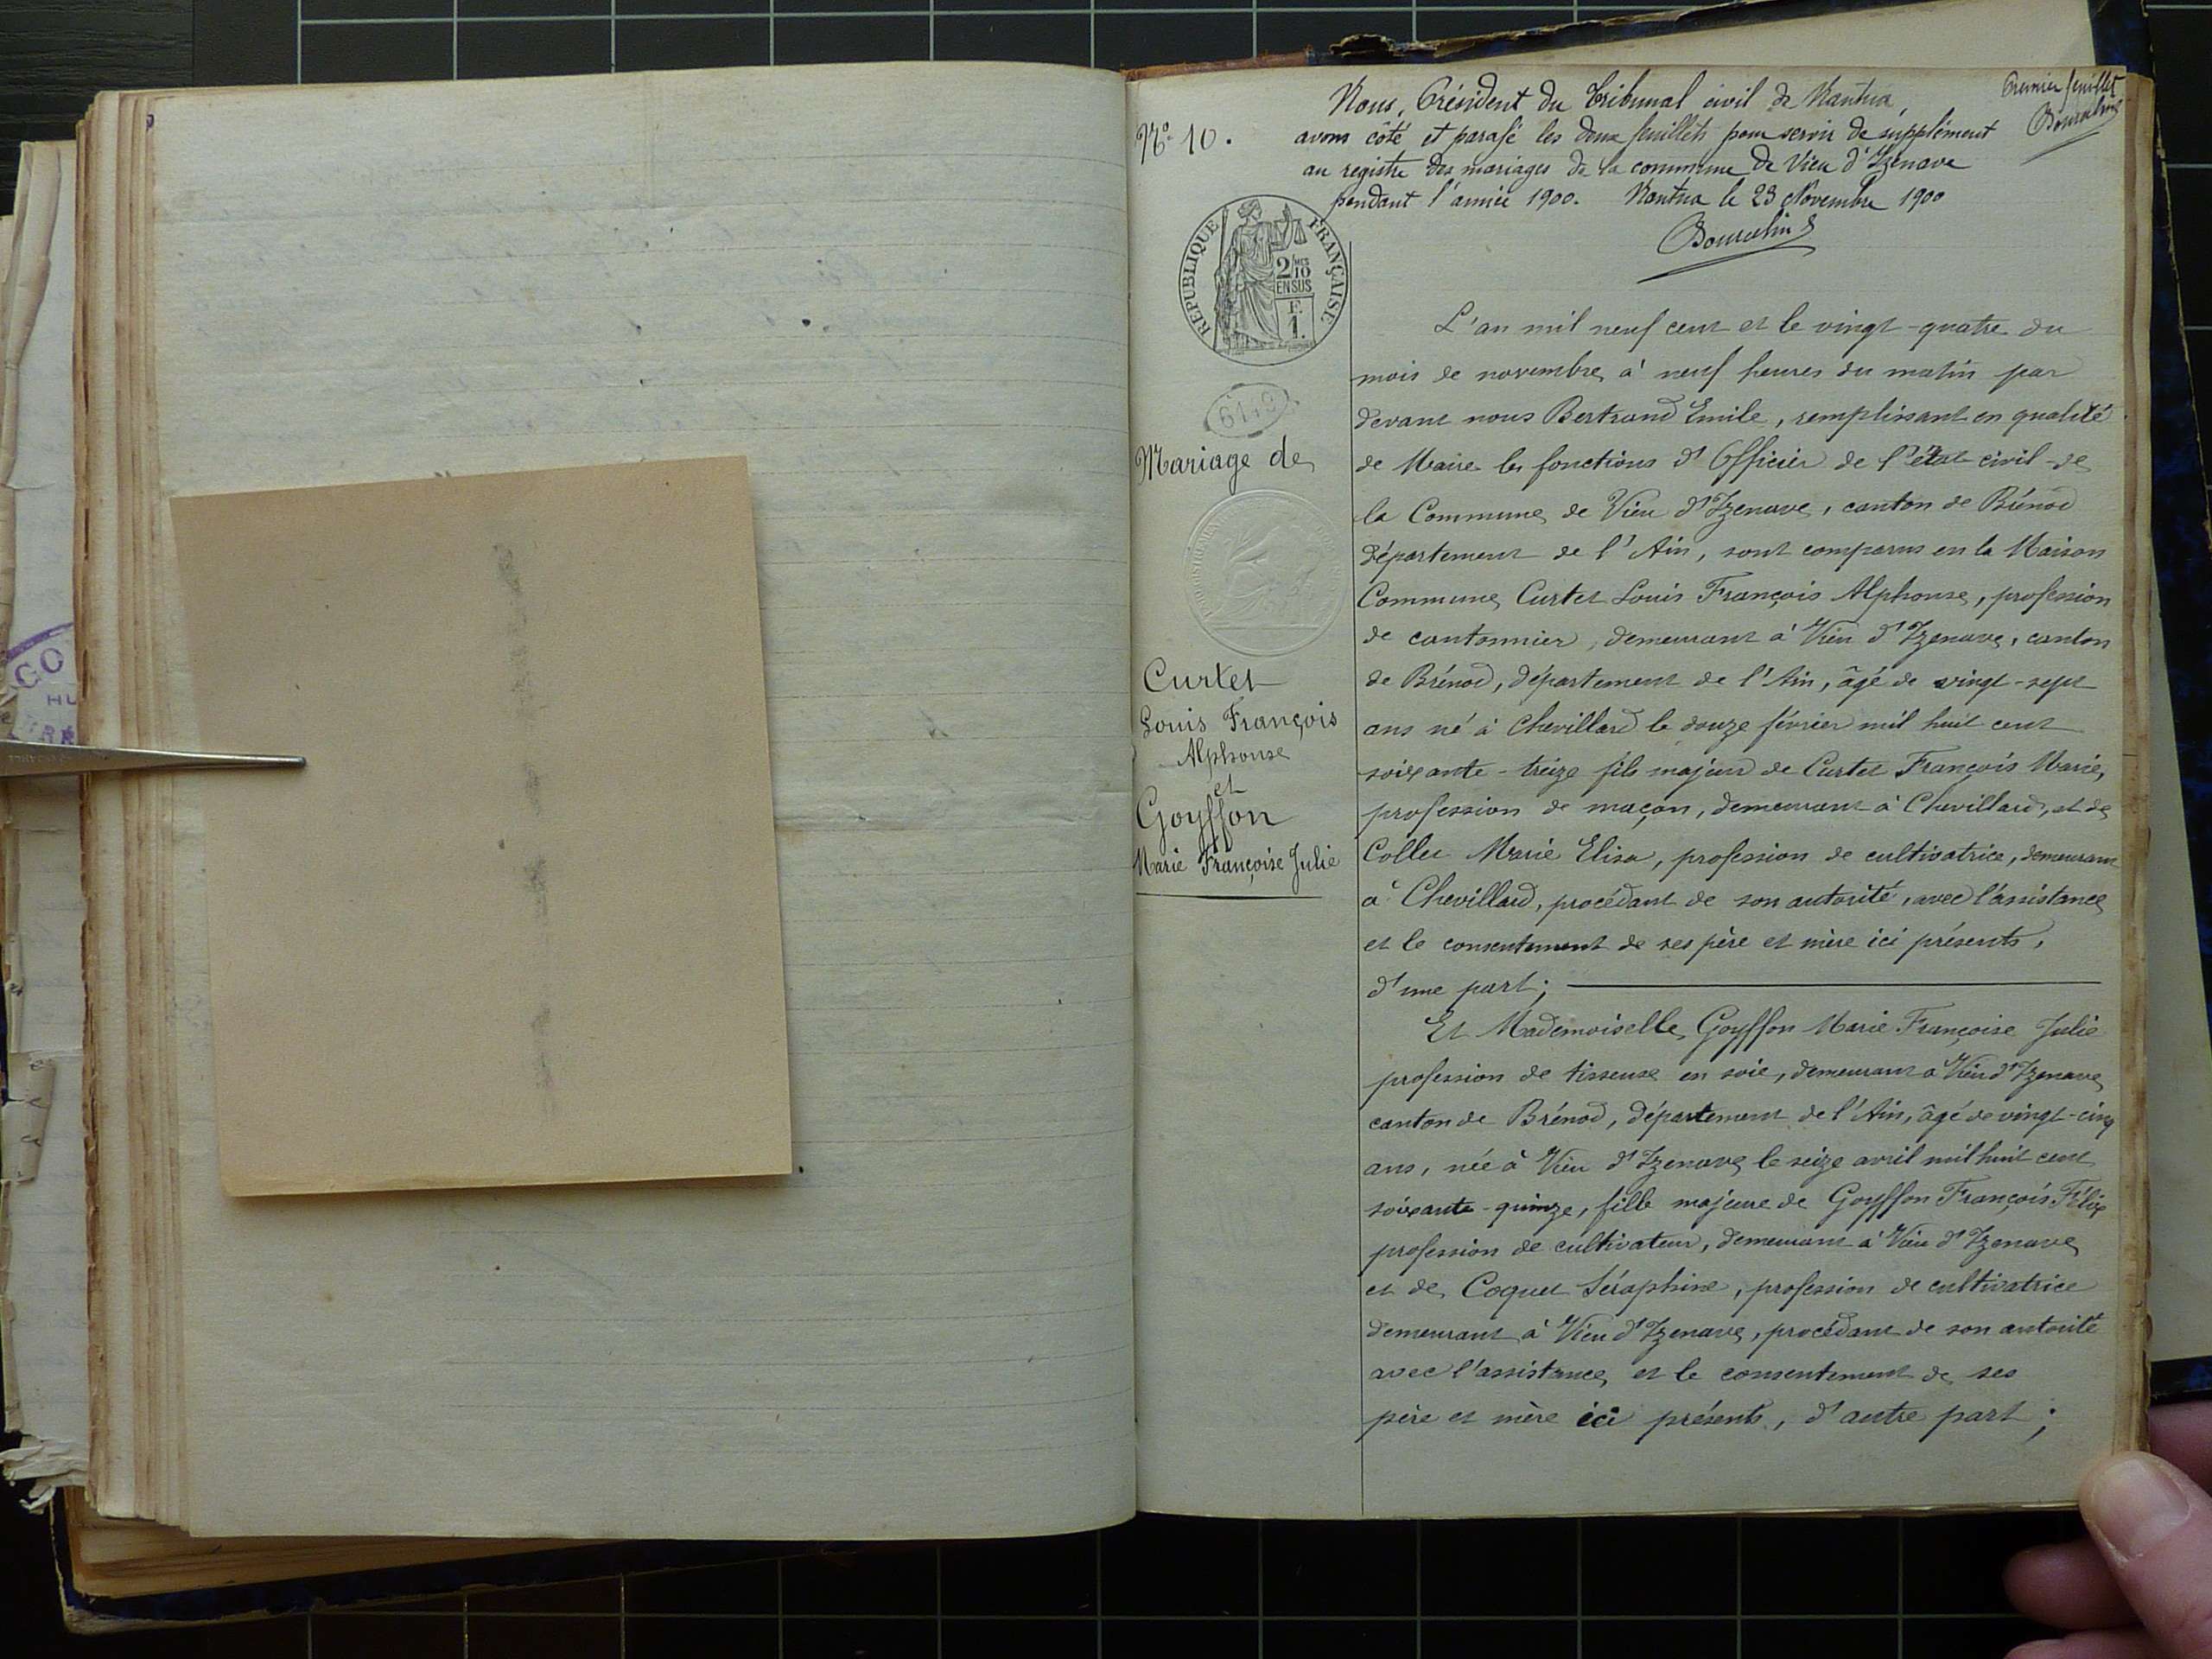 Nous, Président du Tribunal civil de Nantua,
avons côté et parafé les deux feuillets pour servir de supplément
au registre des mariages de la commune de Vieu d'Izenave
pendant l'année 1900. Nantua le 23 Novembre 1900
Premier feuillet
No. 10.
RÉPUBLIQUE FRANÇAISE
2/10 MES
EN SUS
F.
1.
Mariage de
Curtet
Louis François
Alphonse
et
Goyffon
Marie Françoise Julie
L'an mil neuf cent et le vingt-quatre du
mois de novembre à neuf heures du matin par
devant nous Bertrand Emile, remplissant en qualité
de Maire les fonctions d'Officier de l'état civil de
la Commune de Vieu d'Izenave, canton de Brénod
département de l'Ain, sont comparus en la Maison
Commune Curtet Louis François Alphonse, profession
de cantonnier, demeurant à Vieu d'Izenave, canton
de Brénod, département de l'Ain, âgé de vingt-sept
ans né à Chevillard le douze février mil huit cent
soixante-treize fils majeur de Curtet François Marie,
profession de maçon, demeurant à Chevillard, et de
Collet Marie Elisa, profession de cultivatrice, demeurant
à Chevillard, procédant de son autorité, avec l'assistance
et le consentement de ses père et mère ici présents,
d'une part;
Et Mademoiselle Goyffon Marie Françoise Julie
profession de tisseuse en soie, demeurant à Vieu d'Izenave
canton de Brénod, département de l'Ain, âgé de vingt-cinq
ans, née à Vieu d'Izenave le seize avril mil huit cent
soixante-quinze, fille majeure de Goyffon François Félix
profession de cultivateur, demeurant à Vieu d'Izenave
et de Coquet Séraphine, profession de cultivatrice
demeurant à Vieu d'Izenave, procédant de son autorité
avec l'assistance et le consentement de ses
père et mère ici présents, d'autre part;